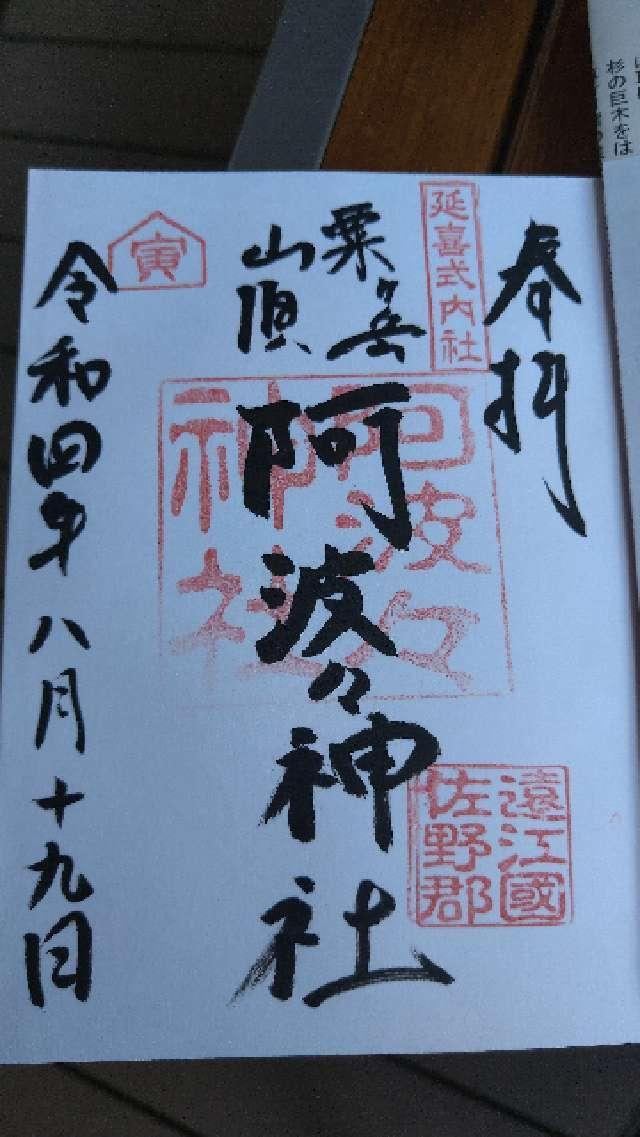 奉拝
延喜式内社
粟ヶ岳
山頂
阿波々神社
阿波々
神社
遠江國
佐野郡
寅
令和四年八月十九日
杉の巨木をは